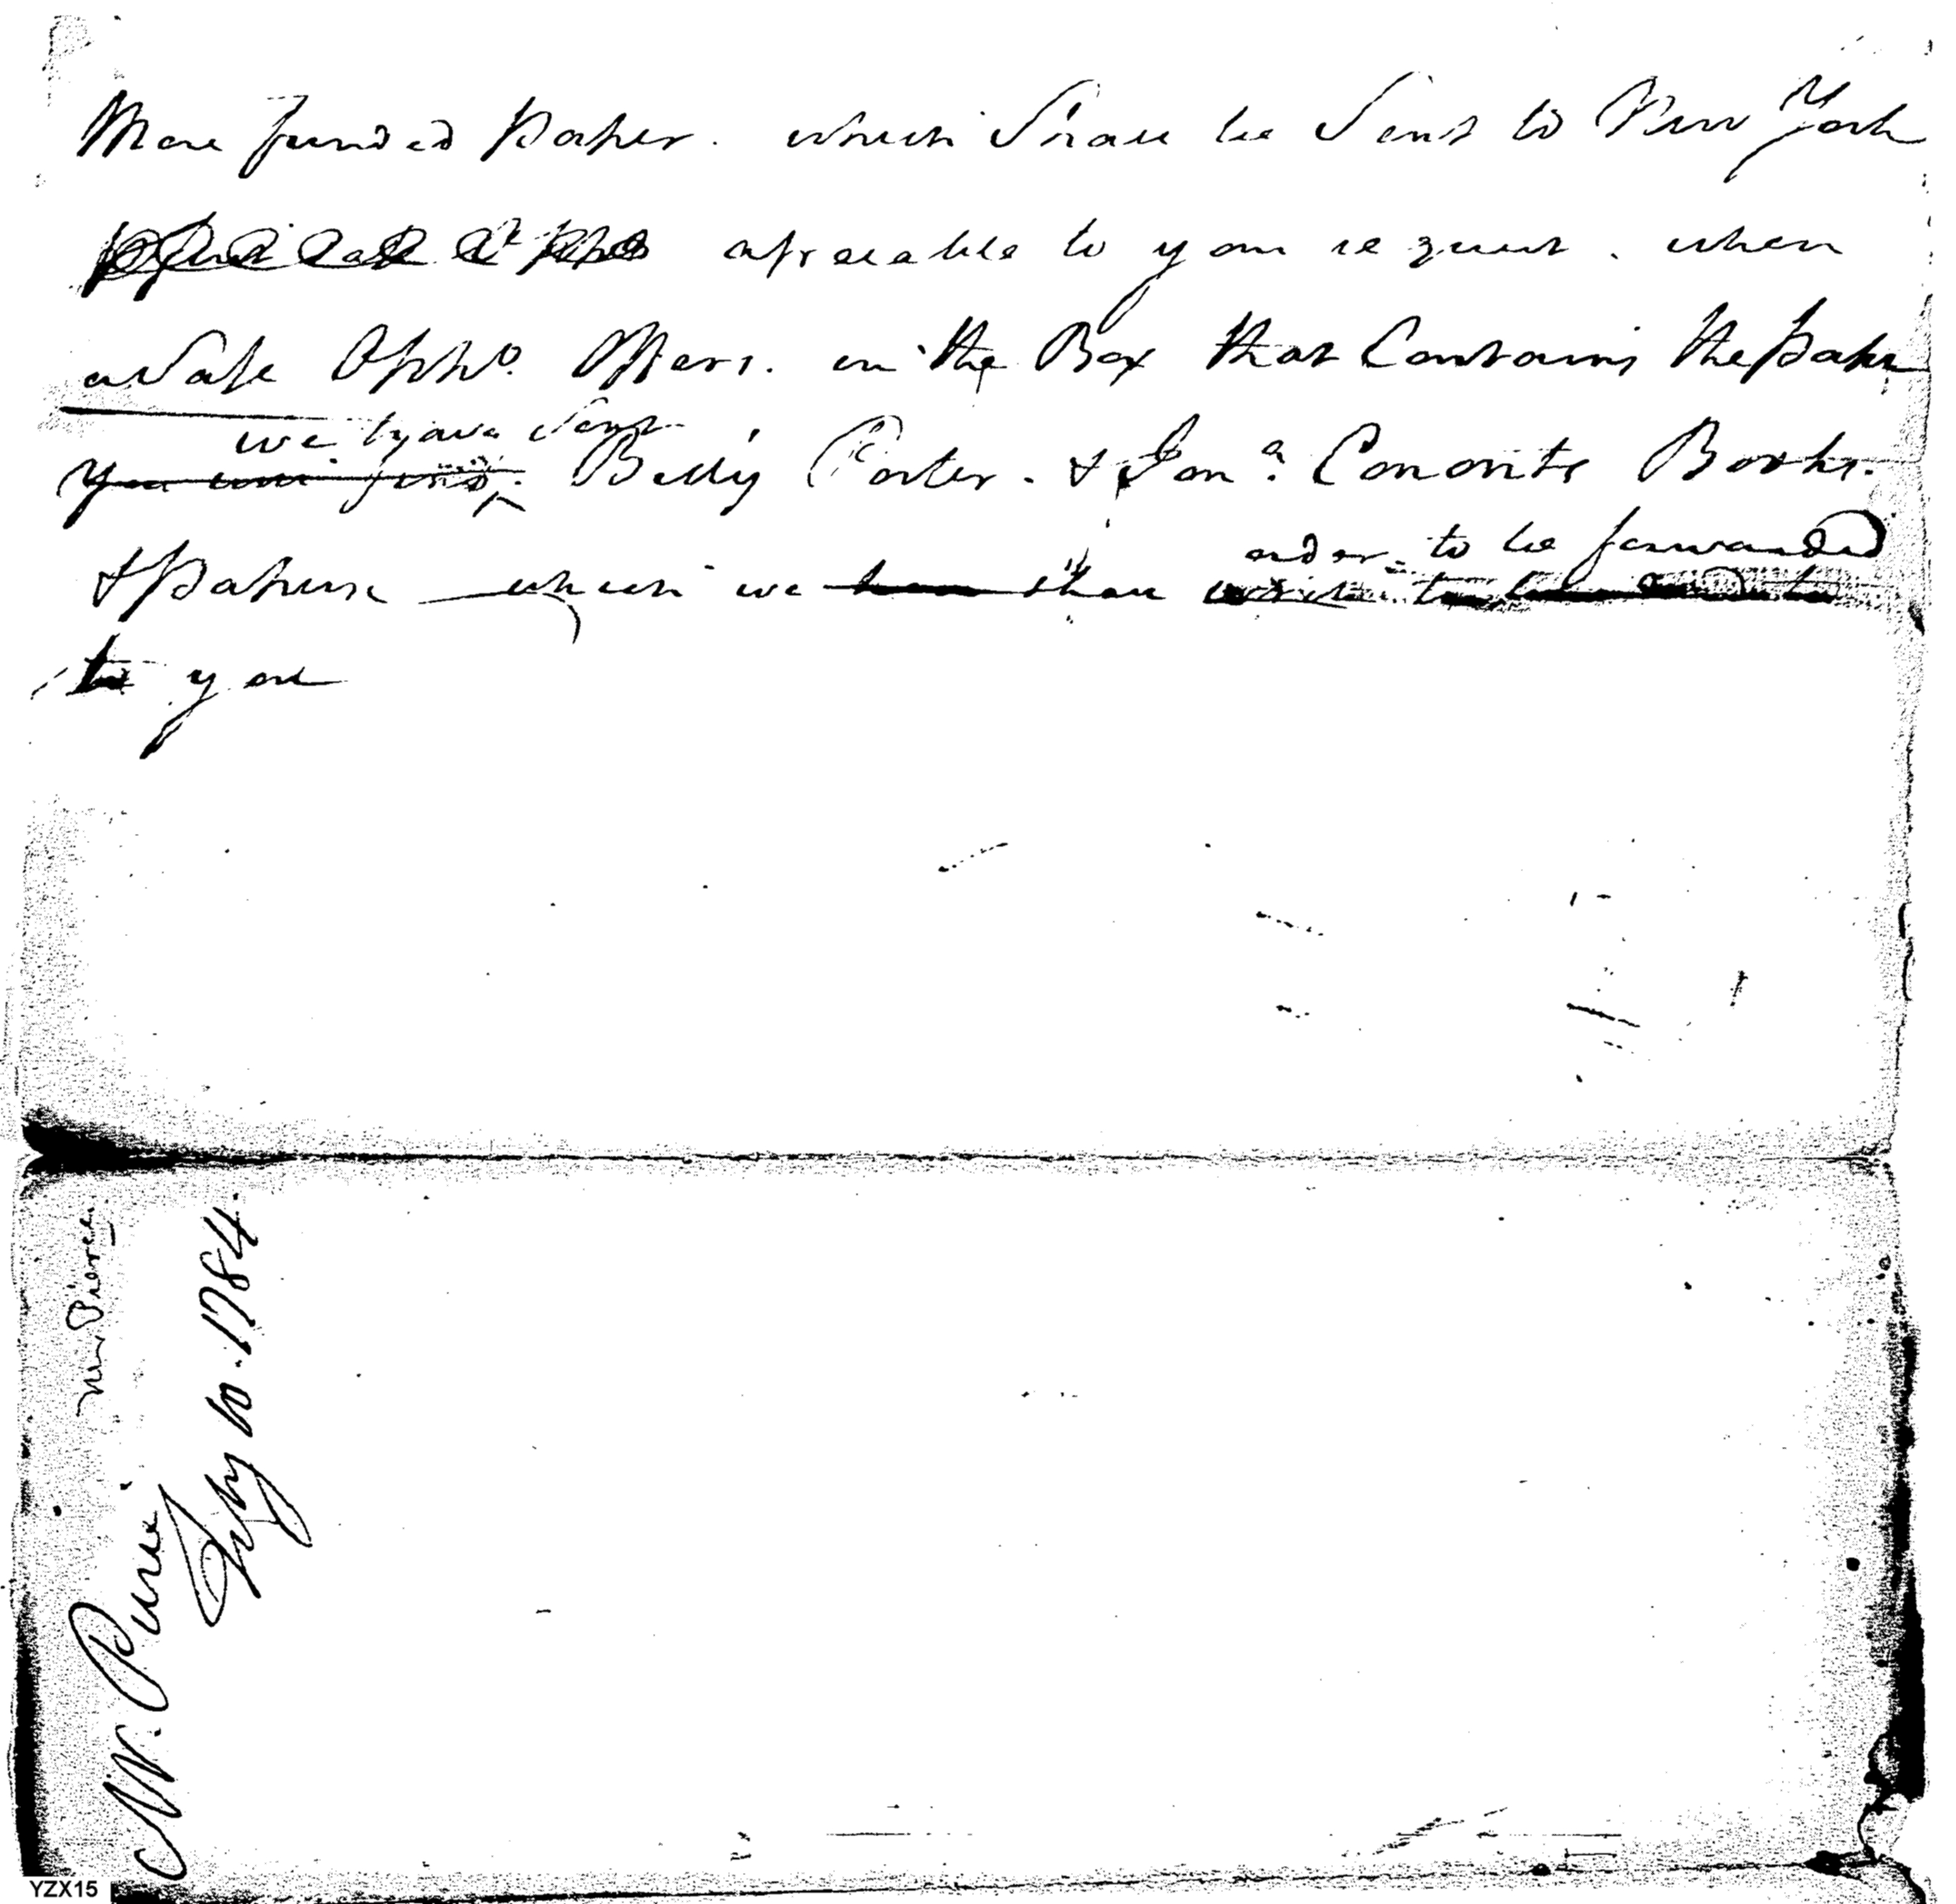 More funded Paper. which Shall be Sent to New York
agreeable to your request. when
a Safe Oppo. Offers. in the Box that Contains the Paper
we have Sent
you will find Betty Porter. & Jona. Conants Books.
order to be forwarded
& Papers which we shall
to you
Mr Pierce
Mr. Pierce
July 10. 1784.
YZX15